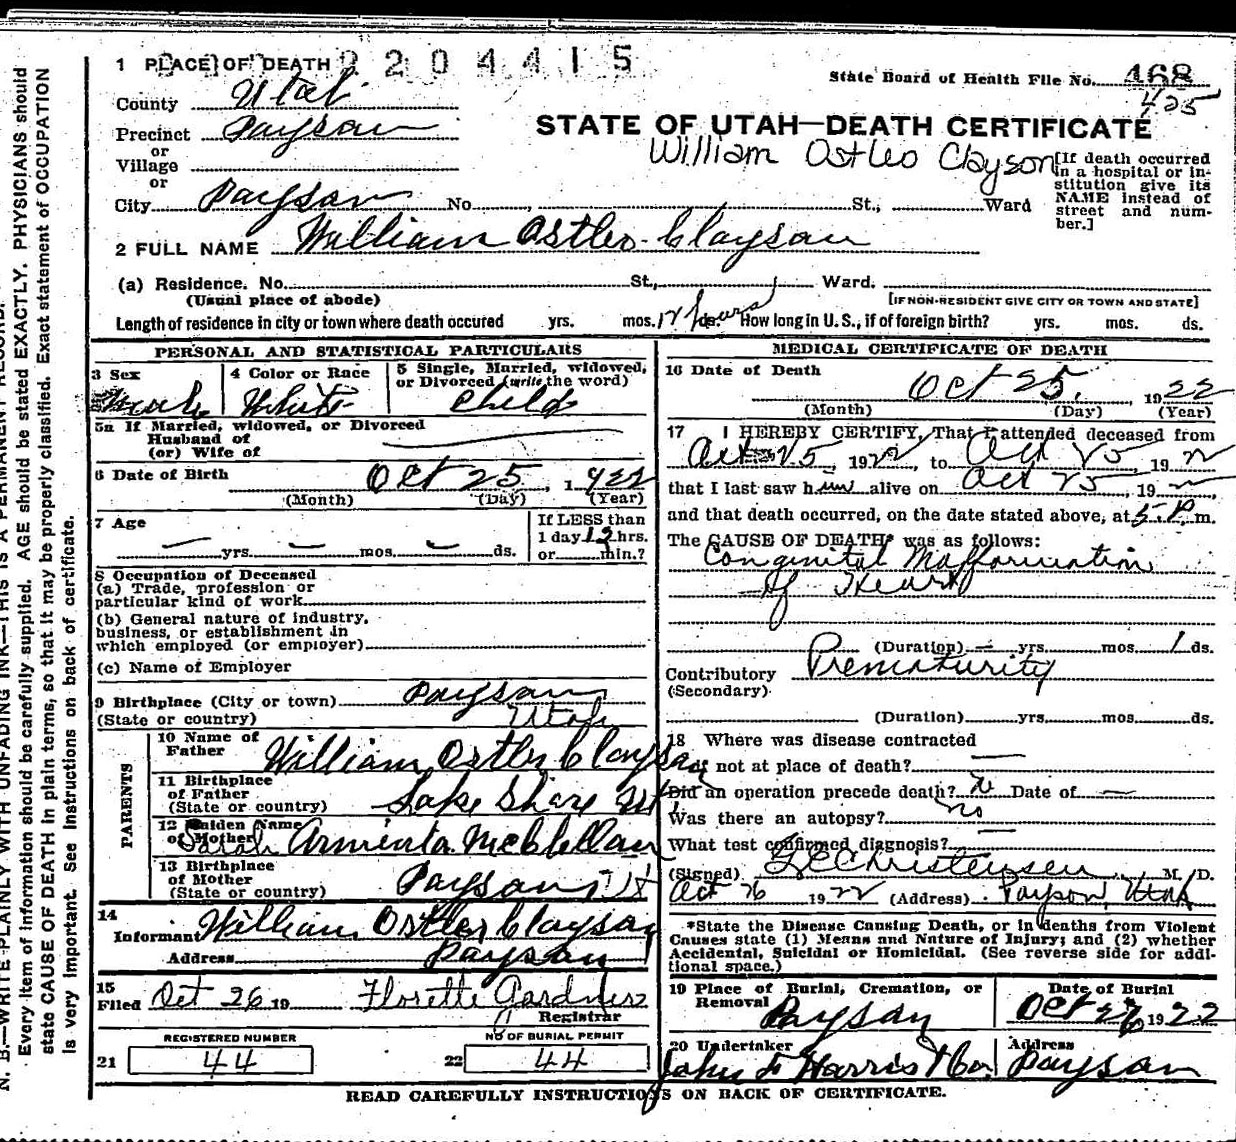 1 PLACE OF DEATH 2204415
State Board of Health File No. 468
425
County Utah
Precinct Payson
or
Village
or
City Payson No. St., Ward
STATE OF UTAH—DEATH CERTIFICATE
William Ostleo Clayson
[If death occurred in a hospital or institution give its NAME instead of street and number.]
2 FULL NAME William Ostler Clayson
(a) Residence. No. St., Ward.
(Usual place of abode) [IF NON-RESIDENT GIVE CITY OR TOWN AND STATE]
Length of residence in city or town where death occured yrs. mos. 12 hours ds. How long in U. S., if of foreign birth? yrs. mos. ds.
PERSONAL AND STATISTICAL PARTICULARS
3 Sex Male
4 Color or Race White
5 Single, Married, widowed, or Divorced (write the word) Child
5a If Married, widowed, or Divorced
Husband of
(or) Wife of
6 Date of Birth Oct 25, 1922
(Month) (Day) (Year)
7 Age — yrs. — mos. — ds.
If LESS than
1 day 12 hrs.
or min.?
8 Occupation of Deceased
(a) Trade, profession or
particular kind of work
(b) General nature of industry,
business, or establishment in
which employed (or employer)
(c) Name of Employer
9 Birthplace (City or town) Payson
(State or country) Utah
PARENTS
10 Name of Father William Ostler Clayson
11 Birthplace of Father
(State or country) Lake Shore Ut.
12 Maiden Name of Mother Sarah Arminta McClellan
13 Birthplace of Mother
(State or country) Payson Ut
14
Informant William Ostler Clayson
Address Payson
15
Filed Oct 26 19 Florette Gardner
Registrar
REGISTERED NUMBER
21 44
NO OF BURIAL PERMIT
22 44
MEDICAL CERTIFICATE OF DEATH
16 Date of Death Oct 25, 1922
(Month) (Day) (Year)
17 I HEREBY CERTIFY, That I attended deceased from
Oct 25, 1922, to Oct 25, 1922
that I last saw him alive on Oct 25, 19
and that death occurred, on the date stated above, at 5 P. m.
The CAUSE OF DEATH* was as follows:
Congenital Malformation
of Heart
(Duration) — yrs. mos. 1 ds.
Contributory Prematurity
(Secondary)
(Duration) yrs. mos. ds.
18 Where was disease contracted
if not at place of death? —
Did an operation precede death? No Date of —
Was there an autopsy? No
What test confirmed diagnosis? —
(Signed) L C Christensen M. D.
Oct 26 1922 (Address) Payson, Utah
*State the Disease Causing Death, or in deaths from Violent
Causes state (1) Means and Nature of Injury; and (2) whether
Accidental, Suicidal or Homicidal. (See reverse side for additional space.)
19 Place of Burial, Cremation, or Removal Payson
Date of Burial Oct 26 1922
20 Undertaker John F Harris & Co.
Address Payson
READ CAREFULLY INSTRUCTIONS ON BACK OF CERTIFICATE.
N. B.—WRITE PLAINLY WITH UNFADING INK—THIS IS A PERMANENT RECORD.
Every item of information should be carefully supplied. AGE should be stated EXACTLY. PHYSICIANS should
state CAUSE OF DEATH in plain terms, so that it may be properly classified. Exact statement of OCCUPATION
is very important. See instructions on back of certificate.